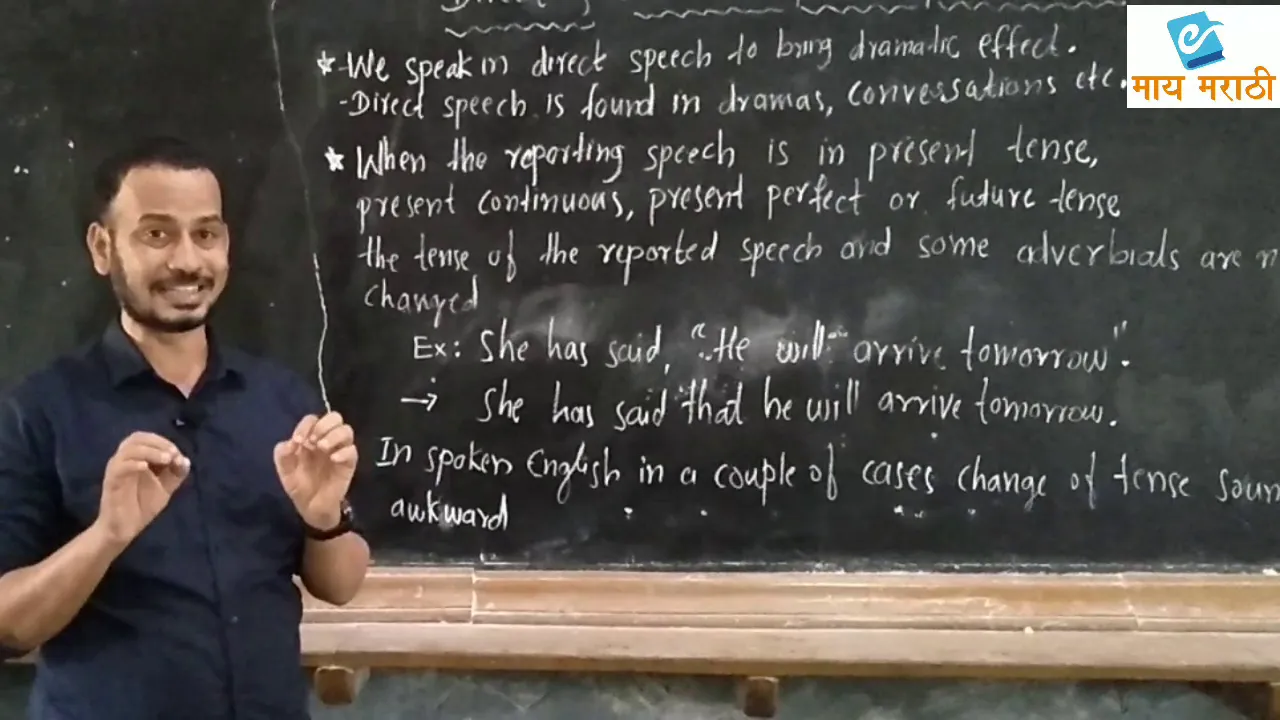 Direct
★ -We speak in direct speech to bring dramatic effect.
-Direct speech is found in dramas, conversations etc.
★ When the reporting speech is in present tense,
present continuous, present perfect or future tense
the tense of the reported speech and some adverbials are
changed
Ex: She has said, "He will arrive tomorrow".
→ She has said that he will arrive tomorrow.
In spoken English in a couple of cases change of tense
awkward
e
माय मराठी